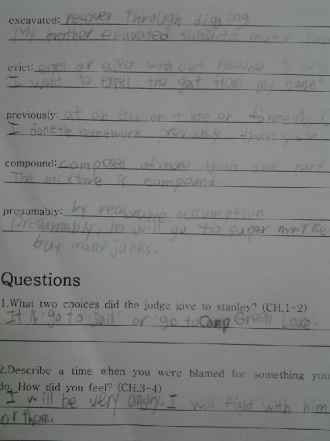 excavated: recover through digging
My brother exravated to make
evict: expel or eject without recourse to
I want to expel the gost from my house
previously: at an earlier time or formerly
I done the homework previously than you
compound: composed of more than one part
The mixture is compound.
presumably: by reasonable assumption
Presumably, he will go to super marke
buy many junks.
Questions
1.What two choices did the judge give to stanley? (CH.1-2)
It is 'go to Jail' or 'go to Camp Green Lake.
2.Describe a time when you were blamed for something you
do. How did you feel? (CH.3-4)
I will be very angry. I will fight with him
or them.